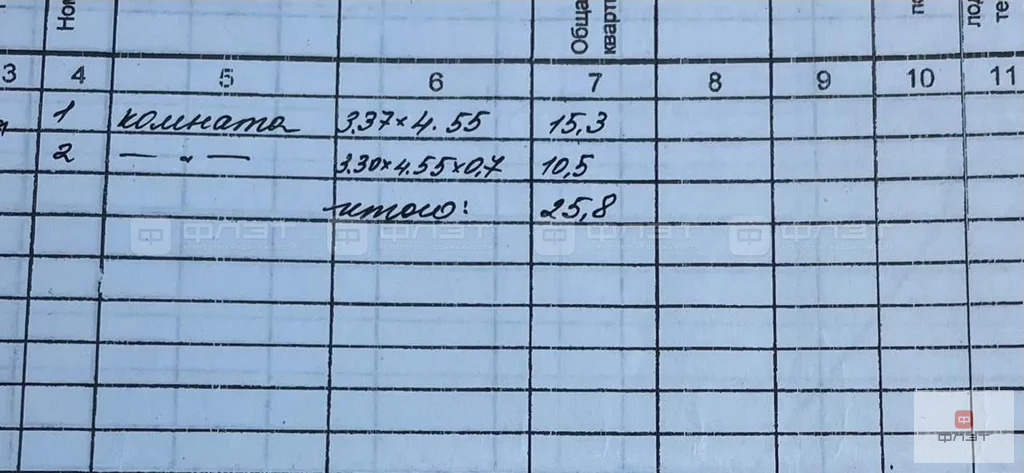 Общая
кварти
3 4 5 6 7 8 9 10 11
1 комната 3.37×4.55 15,3
2 — „ — 3.30×4.55×0,7 10,5
итого: 25,8
ФЛЭТ ФЛЭТ ФЛЭТ ФЛЭТ
ФЛЭТ